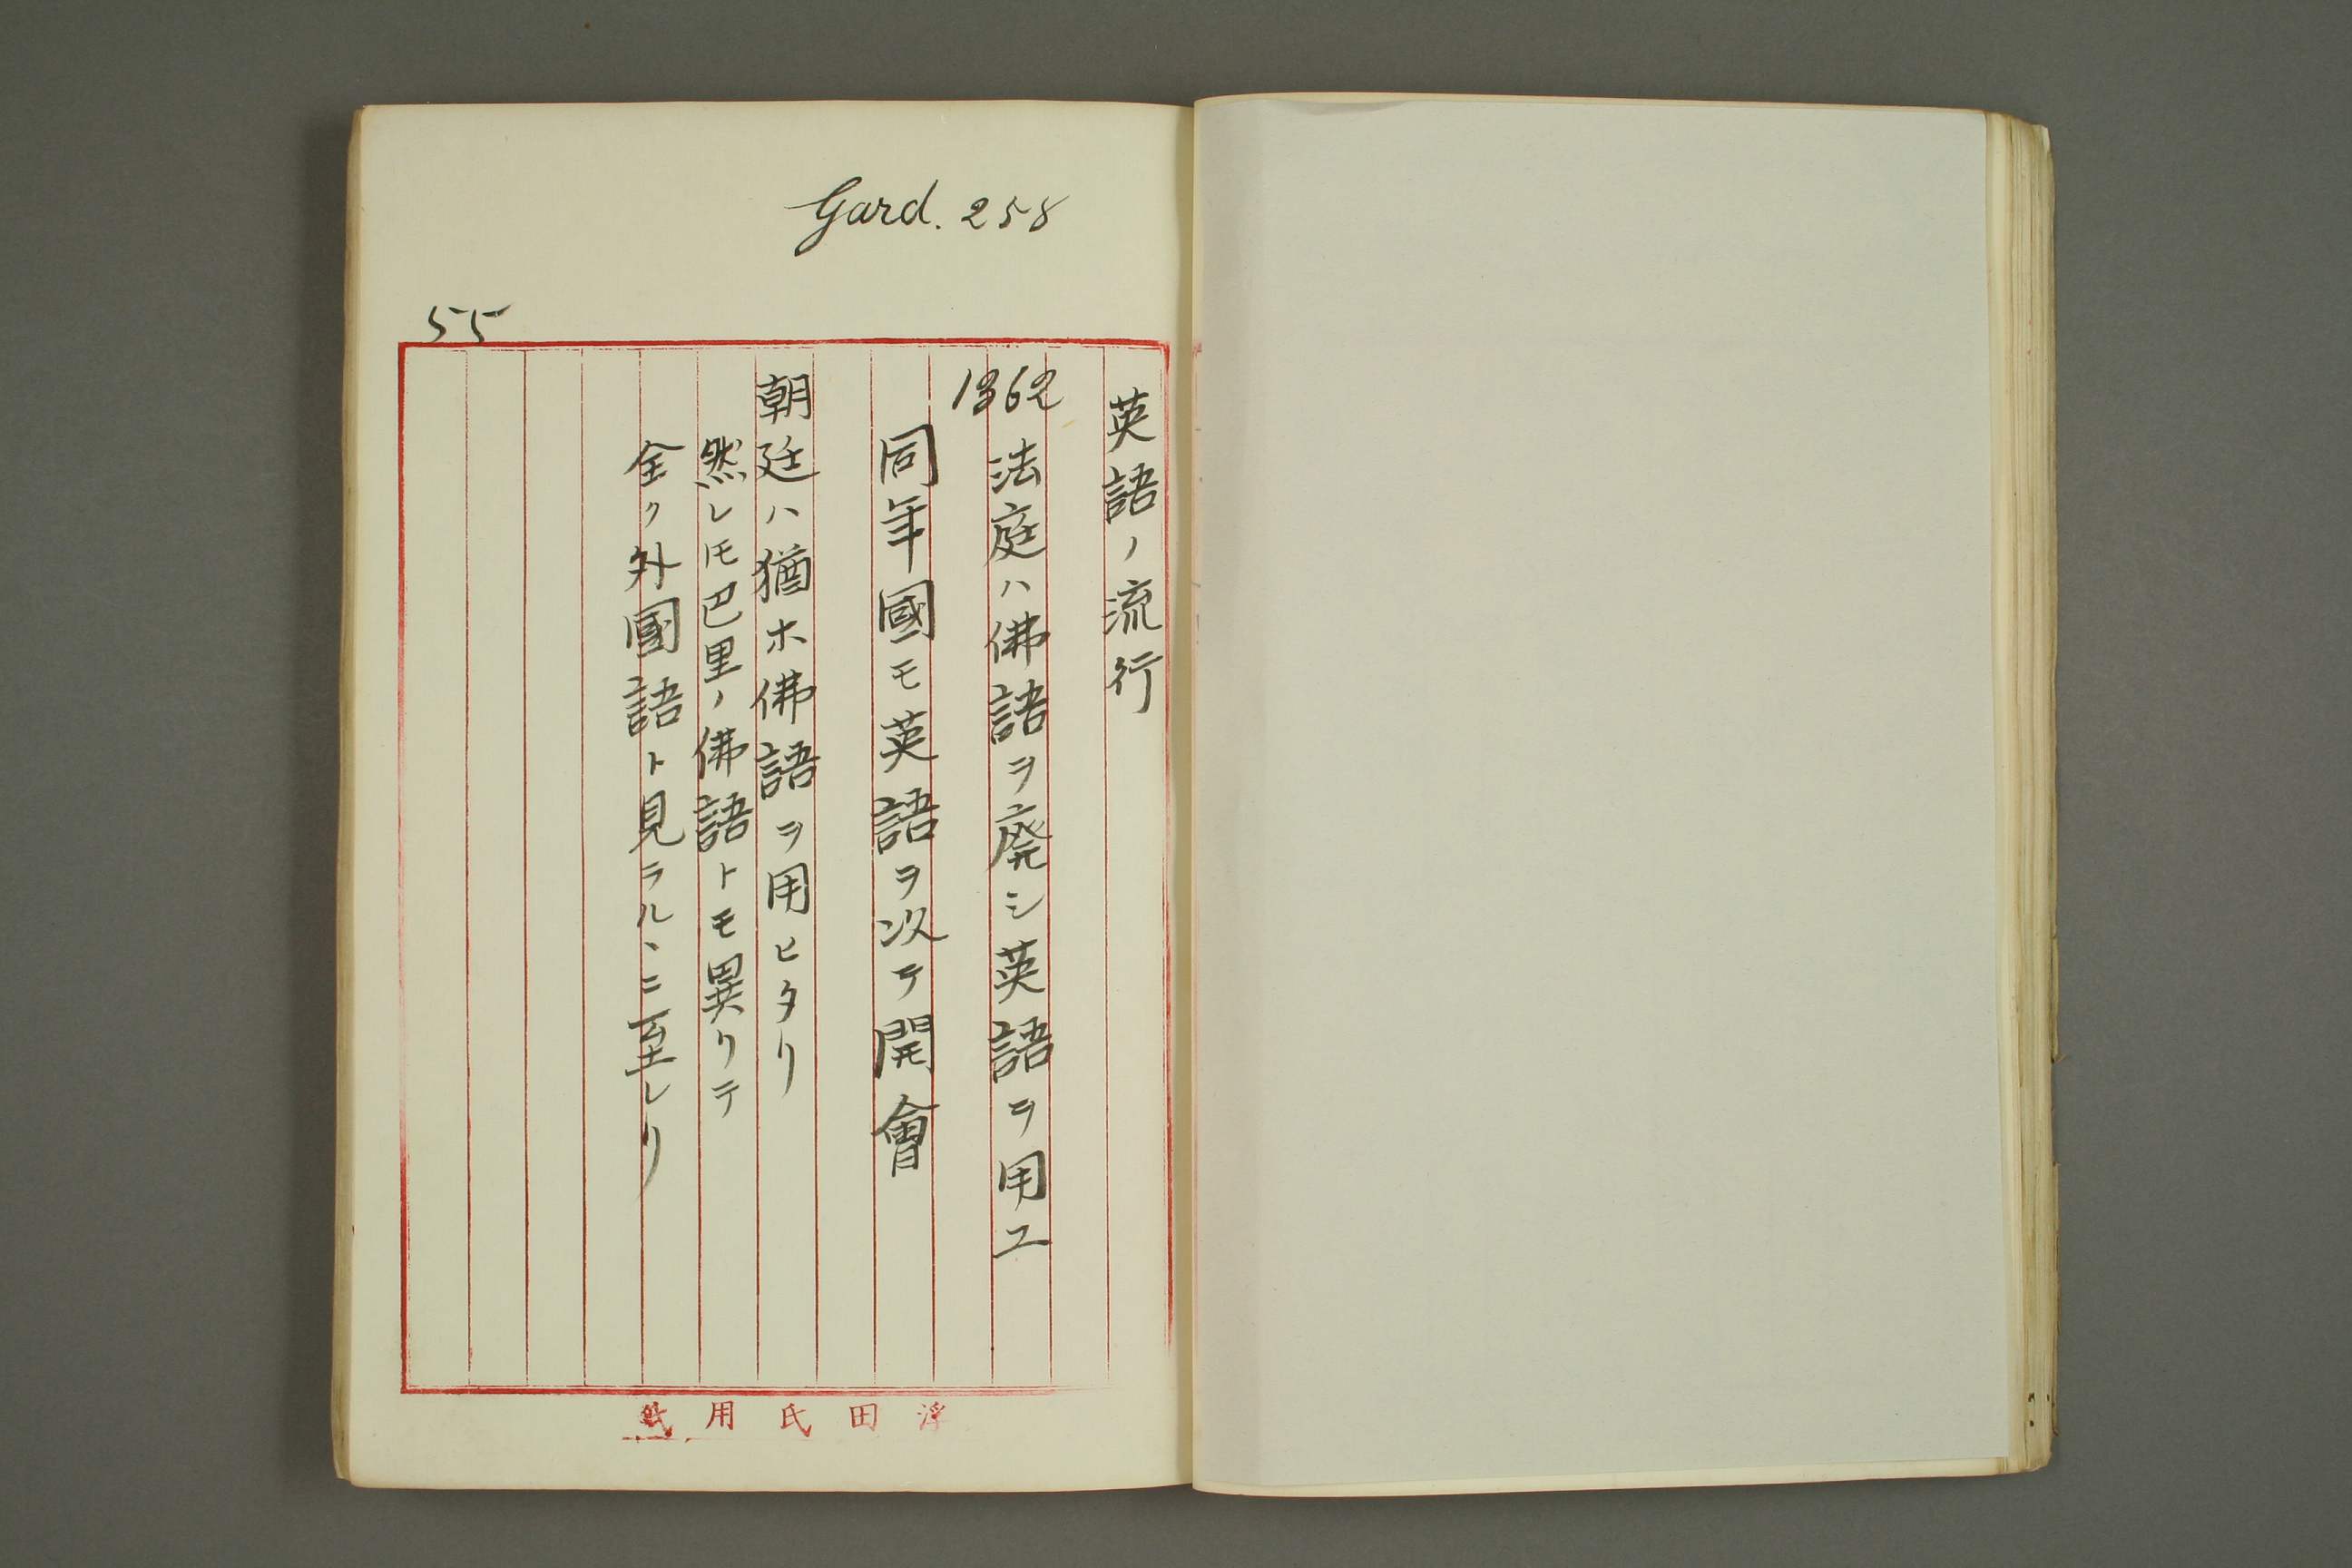 Gard. 258
55
英語ノ流行
1362
法庭ハ佛語ヲ廃シ英語ヲ用ユ
同年國モ英語ヲ以テ開會
朝廷ハ猶ホ佛語ヲ用ヒタリ
然レ𪜈巴里ノ佛語トモ異リテ
全ク外國語ト見ラルヽニ至レリ
浮田氏用紙